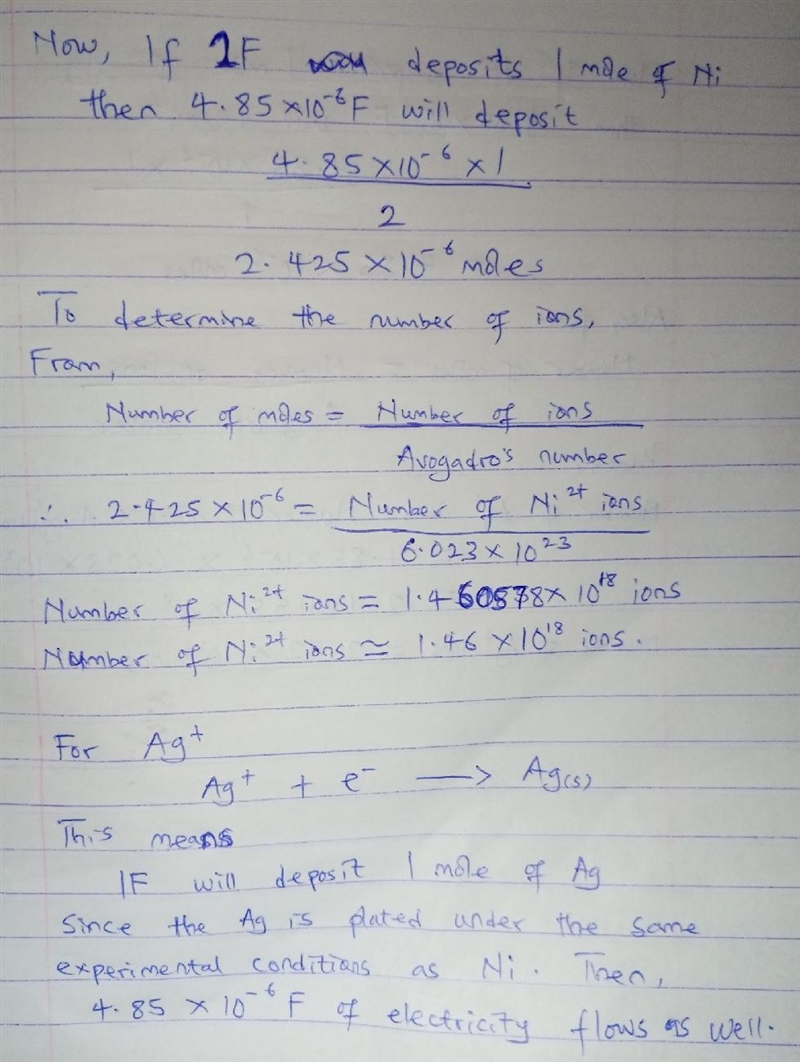 Now, If 2F deposits 1 mole of Ni
then 4.85×10⁻⁶F will deposit
4.85×10⁻⁶ × 1
2
2.425 × 10⁻⁶ moles
To determine the number of ions,
From,
Number of moles = Number of ions
Avogadro's number
∴ 2.425 × 10⁻⁶ = Number of Ni²⁺ ions
6.023 × 10²³
Number of Ni²⁺ ions = 1.460578 × 10¹⁸ ions
Number of Ni²⁺ ions ≃ 1.46 × 10¹⁸ ions.
For Ag⁺
Ag⁺ + e⁻ —> Ag(s)
This means
1F will deposit 1 mole of Ag
Since the Ag is plated under the same
experimental conditions as Ni. Then,
4.85 × 10⁻⁶ F of electricity flows as well.